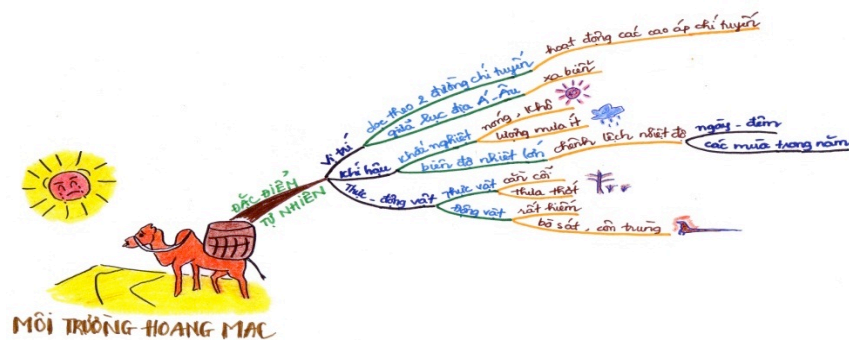 MÔI TRƯỜNG HOANG MẠC
ĐẶC ĐIỂM
TỰ NHIÊN
Vị trí
dọc theo 2 đường chí tuyến
hoạt động các cao áp chí tuyến
giữa lục địa Á-Âu
xa biển
Khí hậu
Khắc nghiệt
nóng, khô
lượng mưa ít
biên độ nhiệt lớn
chênh lệch nhiệt độ
ngày - đêm
các mùa trong năm
Thực - động vật
Thực vật
cằn cỗi
thưa thớt
Động vật
rất hiếm
bò sát, côn trùng